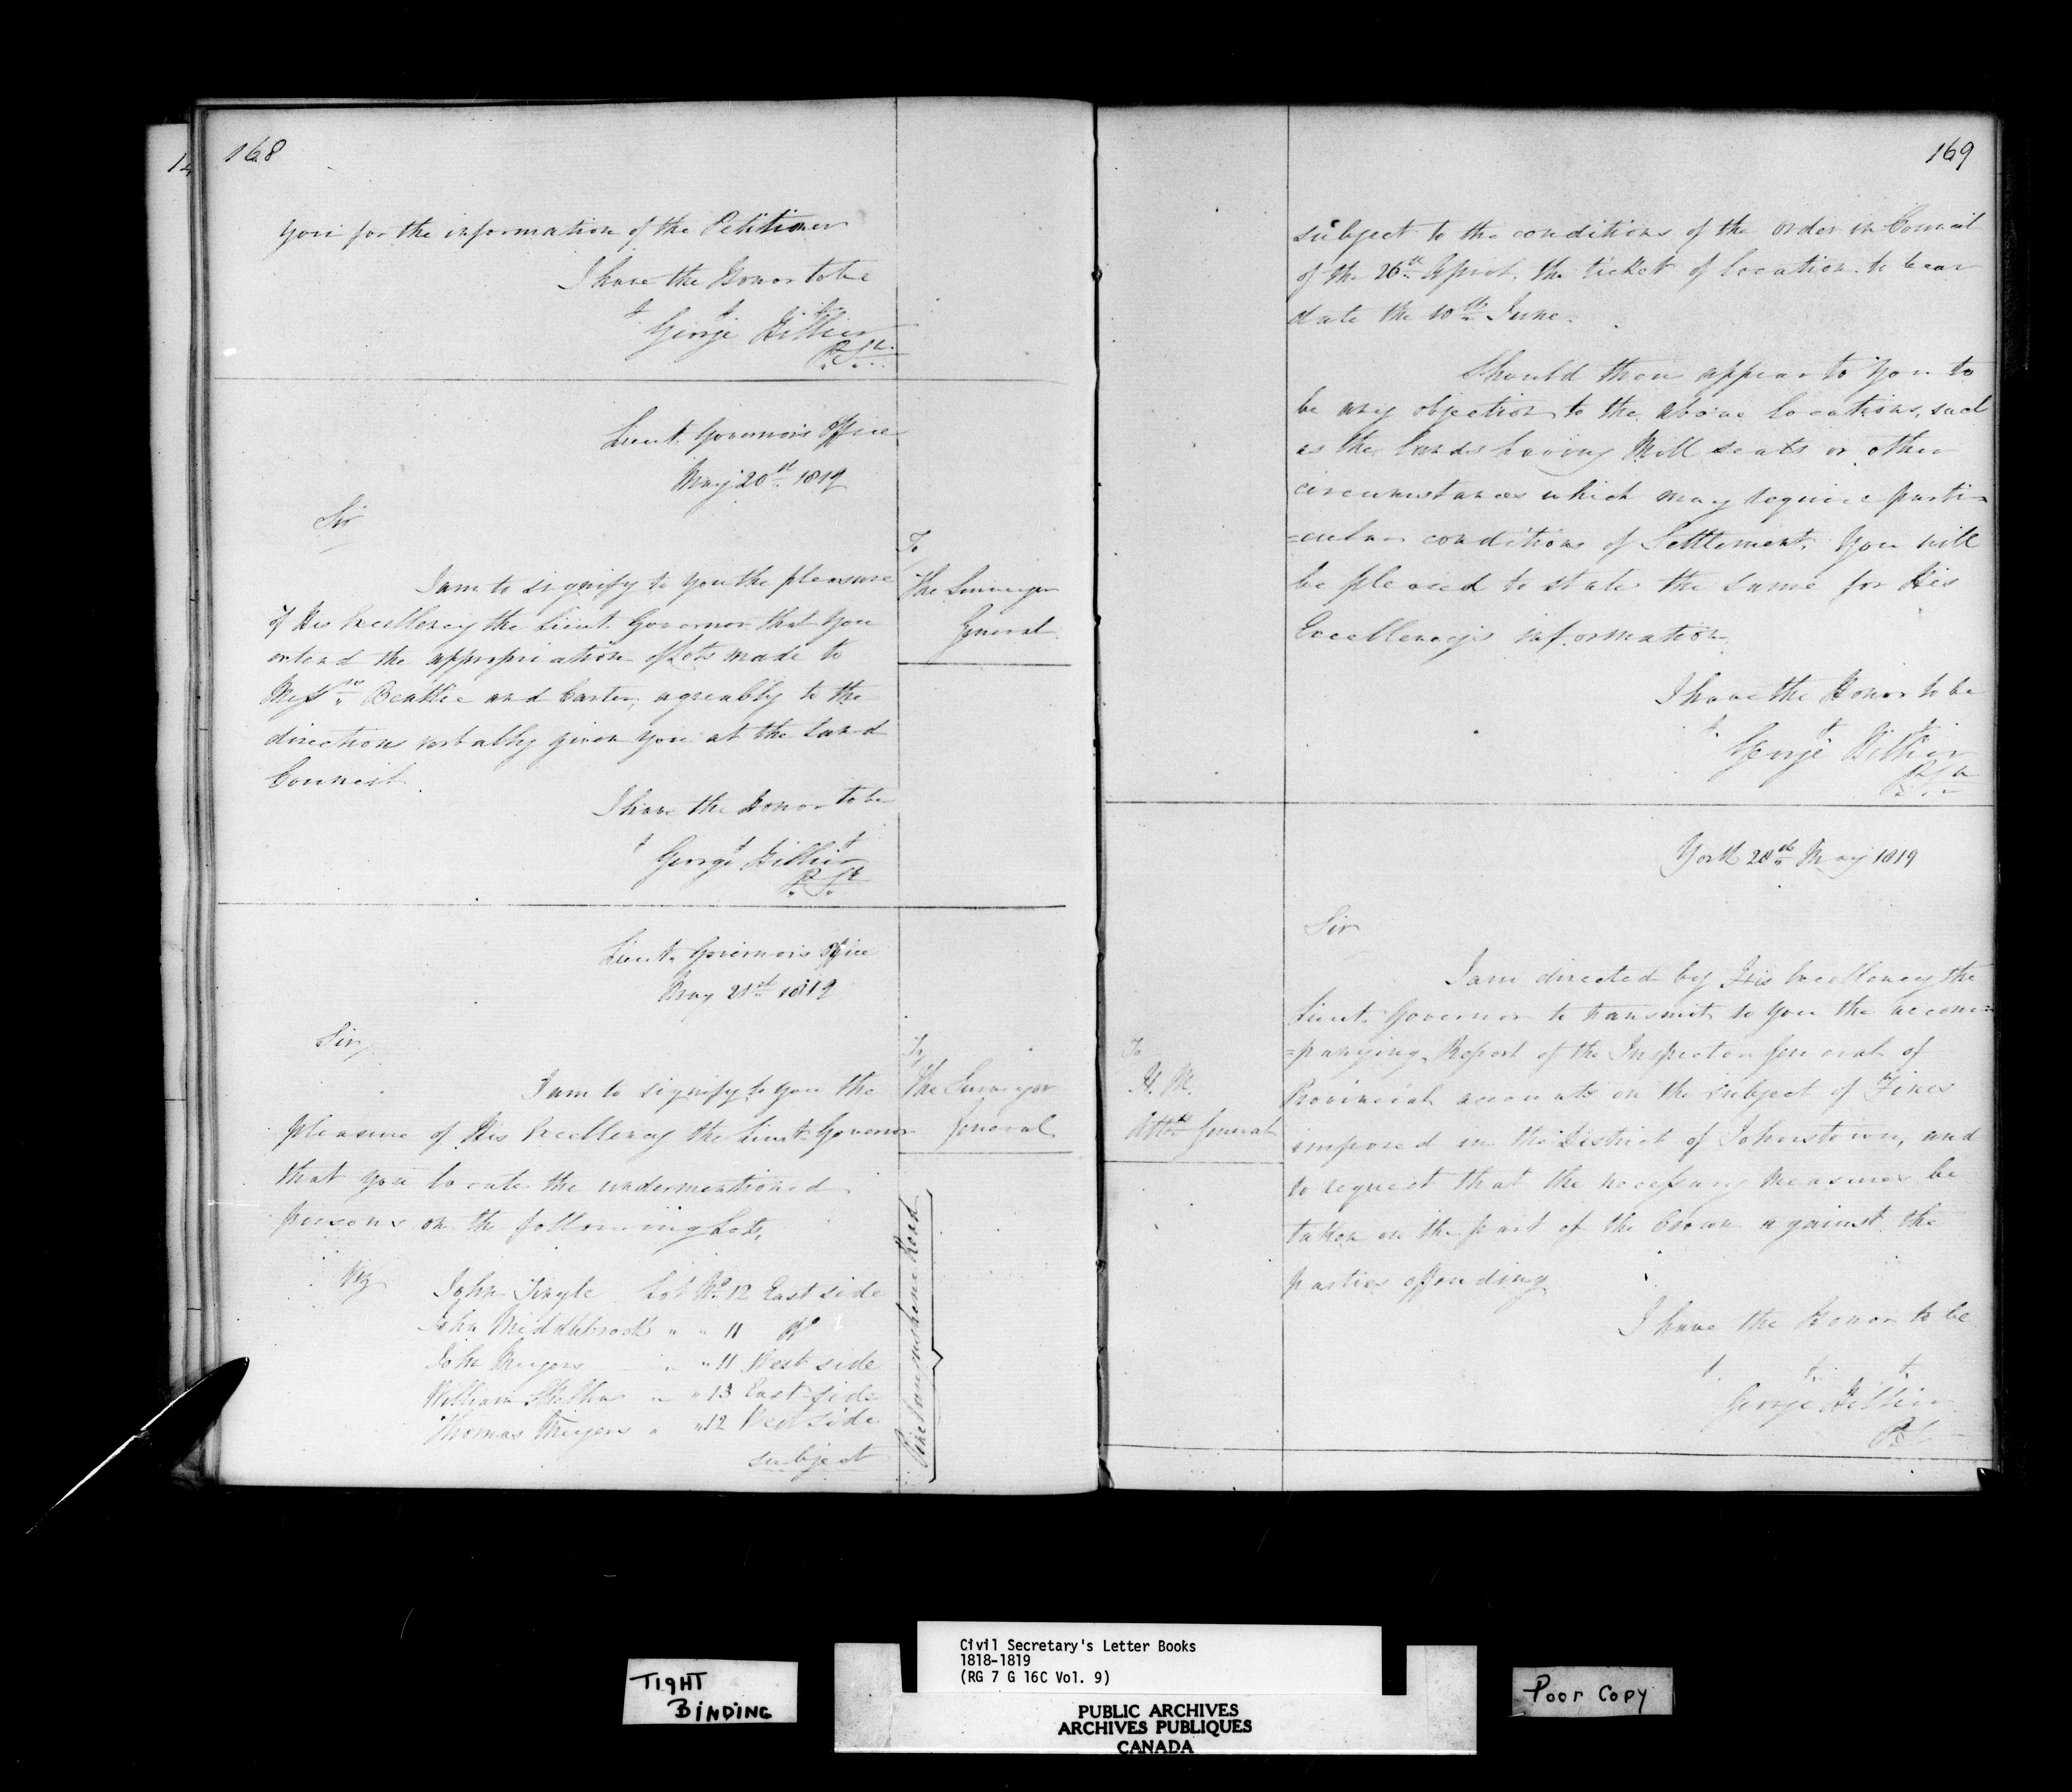 168
you for the information of the Petitioner
I have the Honor to be
George Hillier
P. S.
Lieut. Governor's Office
May 20th 1819
Sir
To
The Surveyor
General
I am to signify to you the pleasure
of His Excellency the Lieut. Governor that you
extend the appropriation of Lots made to
Messrs Beattie and Carter, agreably to the
direction verbally given you at the Land
Council.
I have the Honor to be
George Hillier
P. S.
Lieut. Governor's Office
May 21st 1819
Sir,
To
The Surveyor
General
I am to signify to you the
pleasure of His Excellency the Lieut. Governor
that you locate the undermentioned
persons on the following Lots,
Viz
John Lot No 12 East side
John Middlebrook " " 11 Do
John " " 11 West side
William " " 13 East side
Thomas " " 12 West side
Penetanguishene Road
subject
169
subject to the conditions of the order in Council
of the 26th April, the ticket of location to bear
date the 10th June.
Should there appear to you to
be any objection to the above locations, such
as the lands having Mill seats or other
circumstances which may require parti-
=cular conditions of Settlement, You will
be pleased to state the same for His
Excellency's information.
I have the Honor to be
George Hillier
P. S.
York 28th May 1819
Sir
To
H. M.
Atty General
I am directed by His Excellency the
Lieut. Governor to transmit to you the accom=
=panying Report of the Inspector General of
Provincial accounts on the subject of Fines
imposed in the District of Johnstown, and
to request that the necessary measures be
taken on the part of the Crown against the
parties offending
I have the Honor to be
George Hillier
P. S.
TIGHT
BINDING
Civil Secretary's Letter Books
1818-1819
(RG 7 G 16C Vol. 9)
PUBLIC ARCHIVES
ARCHIVES PUBLIQUES
CANADA
Poor Copy